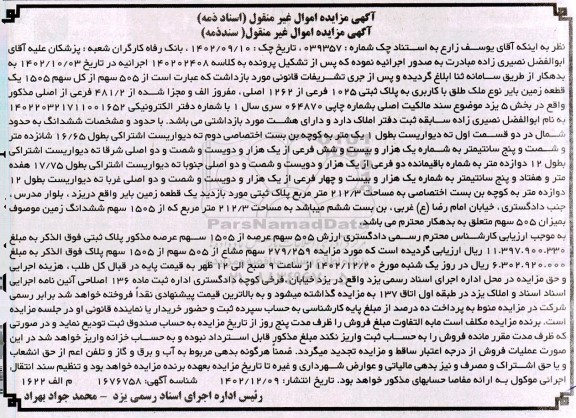 آگهی مزایده اموال غیر منقول (اسناد ذمه)
آگهی مزایده اموال غیر منقول( سندذمه)
نظر به اینکه آقای یوسف زارع به استناد چک شماره : ۰۳۹۳۵۷ ، تاریخ چک : ۱۴۰۲/۰۹/۱۰ ، بانک رفاه کارگران شعبه : پزشکان علیه آقای
ابوالفضل نصیری زاده مبادرت به صدور اجرائیه نموده که پس از تشکیل پرونده به کلاسه ۱۴۰۲۰۲۴۰۸ اجرائیه در تاریخ ۱۴۰۲/۱۰/۰۳ به
بدهکار از طریق سامانه ثنا ابلاغ گردیده و پس از جری تشریفات قانونی مورد بازداشت که عبارت است از ۵۰۵ سهم از کل سهم ۱۵۰۵ یک
قطعه زمین بایر نوع ملک طلق با کاربری به پلاک ثبتی ۱۰۲۵ فرعی از ۱۲۶۲ اصلی ، مفروز الف و مجزا شده از ۴۸۱/۲ فرعی از اصلی مذکور
واقع در بخش ۵ یزد موضوع سند مالکیت اصلی بشماره چاپی ۰۶۴۸۷۰ سری سال ۱ با شماره دفتر الکترونیکی ۱۴۰۲۲۰۳۲۱۷۱۱۰۰۱۶۵۲
به نام ابوالفضل نصیری زاده سابقه ثبت دفتر املاک دارد و دارای هشت مورد بازداشتی می باشد. با حدود و مشخصات ششدانگ به حدود
شمال در دو قسمت اول ته دیواریست بطول ۱ یک متر به کوچه بن بست اختصاصی دوم ته دیواریست اشتراکی بطول ۱۶/۶۵ شانزده متر
و شصت و پنج سانتیمتر به شماره یک هزار و بیست و شش فرعی از یک هزار و دویست و شصت و دو اصلی شرقا ته دیواریست اشتراکی
بطول ۱۲ دوازده متر به شماره باقیمانده دو فرعی از یک هزار و دویست و شصت و دو اصلی جنوبا ته دیواریست اشتراکی بطول ۱۷/۷۵ هفده
متر و هفتاد و پنج سانتیمتر به شماره یک هزار و بیست و چهار فرعی از یک هزار و دویست و شصت و دو اصلی غربا ته دیواریست بطول ۱۲
دوازده متر به کوچه بن بست اختصاصی به مساحت ۲۱۲/۳ متر مربع پلاک ثبتی مورد بازدید یک قطعه زمین بایر واقع دریزد ، بلوار مدرس ،
جنب دادگستری ، خیابان امام رضا (ع) غربی ، بن بست ششم میباشد به مساحت ۲۱۲/۳ متر مربع که از ۱۵۰۵ سهم ششدانگ زمین موصوف
بمیزان ۵۰۵ سهم متعلق به بدهکار محترم می باشد.
به موجب ارزیابی کارشناس محترم رسمی دادگستری ارزش ۵۰۵ سهم عرصه از ۱۵۰۵ سهم عرصه مذکور پلاک ثبتی فوق الذکر به مبلغ
۱۱.۳۹۷.۹۰۰.۳۳۰ ریال ارزیابی گردیده است که مورد مزایده ۲۷۹/۲۵۹ سهم مشاع از ۵۰۵ سهم از ۱۵۰۵ سهم پلاک فوق الذکر به مبلغ
۶.۳۰۲.۹۲۰.۰۰۰ ریال در روز یک شنبه مورخ ۱۴۰۲/۱۲/۲۰ از ساعت ۹ صبح الی ۱۲ ظهر به قیمت پایه در قبال کل طلب ، هزینه اجرایی
و حق مزایده در محل اداره اجرای اسناد رسمی یزد واقع در یزد خیابان فرخی کوچه دادگستری اداره ثبت ماده ۱۳۶ اصلاحی آئین نامه اجرایی
اسناد اسناد و املاک یزد در طبقه اول اتاق ۱۳۷ به مزایده گذاشته میشود و به بالاترین قیمت پیشنهادی نقداً فروخته خواهد شد برابر رسمی
شرکت در مزایده منوط به پرداخت ده درصد از مبلغ پایه کارشناسی به حساب سپرده ثبت و حضور خریدار یا نماینده قانونی او در جلسه مزایده
است. برنده مزایده مکلف است مابه التفاوت مبلغ فروش را ظرف مدت پنج روز از تاریخ مزایده به حساب صندوق ثبت تودیع نماید و در صورتی
که ظرف مدت مقرر مانده فروش را به حساب ثبت واریز نکند مبلغ مذکور قابل استرداد نبوده و به حساب خزانه واریز خواهد شد در این
صورت عملیات فروش از درجه اعتبار ساقط و مزایده تجدید میگردد. ضمناً هرگونه بدهی مربوط به آب و برق و گاز و تلفن اعم از حق انشعاب
و یا حق اشتراک و مصرف و نیز بدهی مالیاتی و عوارض شهرداری و غیره تا تاریخ مزایده بعهده برنده مزایده خواهد بود و تنظیم سند انتقال
اجرایی موکول به ارائه مفاصا حسابهای مذکور خواهد بود. تاریخ انتشار: ۱۴۰۲/۱۲/۰۹ شناسه آگهی: ۱۶۷۶۷۵۸ م الف ۱۶۲۲
رئیس اداره اجرای اسناد رسمی یزد - محمد جواد بهراد